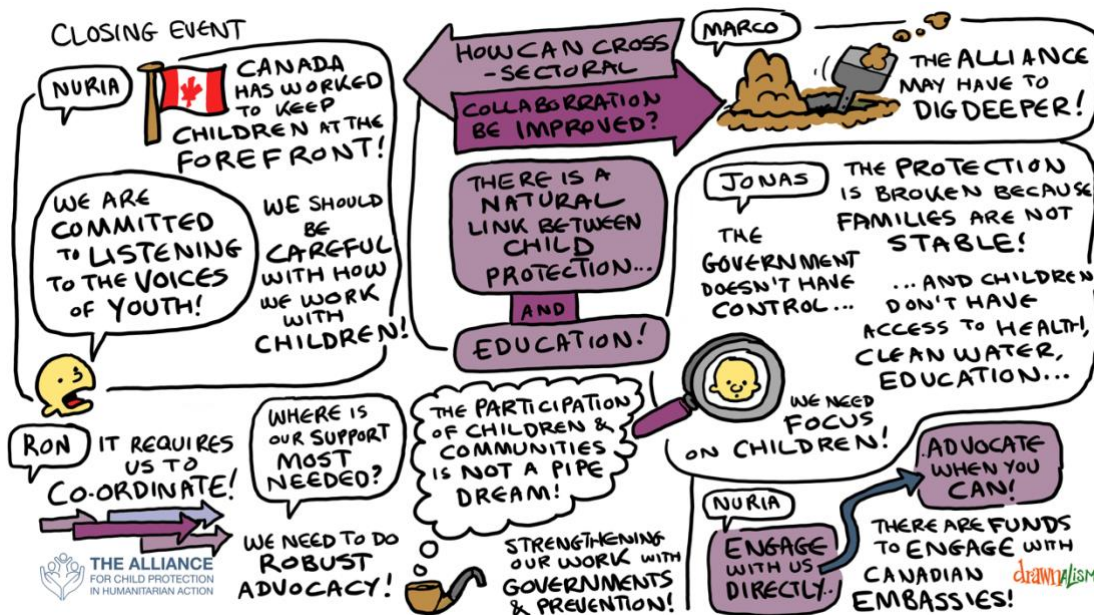 CLOSING EVENT
NURIA
CANADA
HAS WORKED
TO KEEP
CHILDREN AT THE
FOREFRONT!
WE ARE
COMMITTED
TO LISTENING
TO THE VOICES
OF YOUTH!
WE SHOULD
BE
CAREFUL
WITH HOW
WE WORK
WITH
CHILDREN!
HOW CAN CROSS
-SECTORAL
COLLABORRATION
BE IMPROVED?
THERE IS A
NATURAL
LINK BETWEEN
CHILD
PROTECTION...
AND
EDUCATION!
MARCO
THE ALLIANCE
MAY HAVE TO
DIG DEEPER!
JONAS
THE PROTECTION
IS BROKEN BECAUSE
FAMILIES ARE NOT
STABLE!
THE
GOVERNMENT
DOESN'T HAVE
CONTROL...
...AND CHILDREN
DON'T HAVE
ACCESS TO HEALTH,
CLEAN WATER,
EDUCATION...
WE NEED
FOCUS
ON CHILDREN!
RON
IT REQUIRES
US TO
CO-ORDINATE!
WHERE IS
OUR SUPPORT
MOST
NEEDED?
WE NEED TO DO
ROBUST
ADVOCACY!
THE PARTICIPATION
OF CHILDREN &
COMMUNITIES
IS NOT A PIPE
DREAM!
STRENGTHENING
OUR WORK WITH
GOVERNMENTS
& PREVENTION!
NURIA
ENGAGE
WITH US
DIRECTLY..
..ADVOCATE
WHEN YOU
CAN!
THERE ARE FUNDS
TO ENGAGE WITH
CANADIAN
EMBASSIES!
THE ALLIANCE
FOR CHILD PROTECTION
IN HUMANITARIAN ACTION
drawnalism